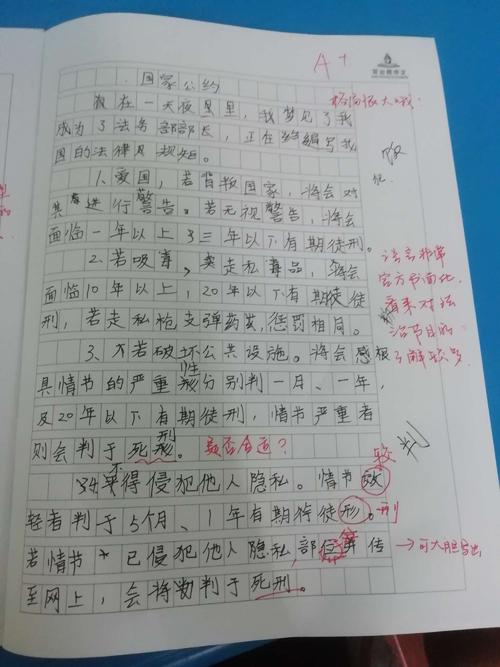 A+
国家公约
格局很大哦!
我在一天夜里,我梦见了我
成为了法务部部长,正在编写我
国的法律及规矩。
1、爱国,若背叛国家,将会对
其进行警告。若无视警告,将会
面临一年以上3三年以下有期徒刑。
语言非常
2、若吸毒,卖走私毒品,将会
官方书面化,
面临10年以上,20年以下有期徒
看来对法
刑,若走私枪支弹药类,惩罚相同。
治节目的
3、不若破坏公共设施。将会根
了解较多
具情节的严重性分别判一月、一年,
及20年以下有期徒刑,情节严重者
则会判于死刑。是否合适?
判
较
不得侵犯他人隐私。情节
轻者判于5个月、1年有期待徒形。刑
若情节 已侵犯他人隐私部位并传
→可大胆写出
至网上,会将判于死刑。